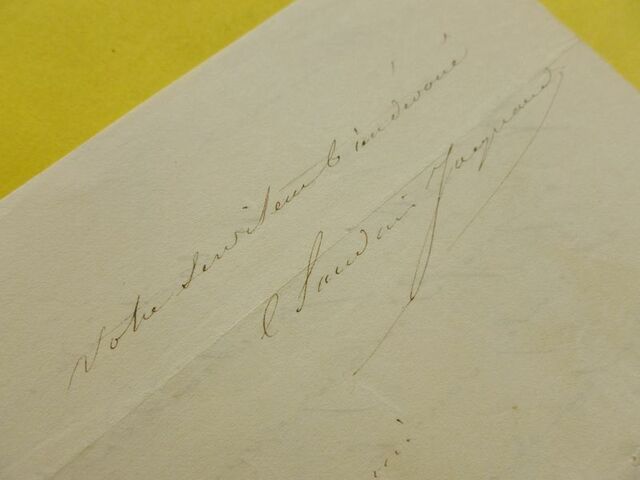 Votre serviteur bien dévoué
Claudius Jacquand